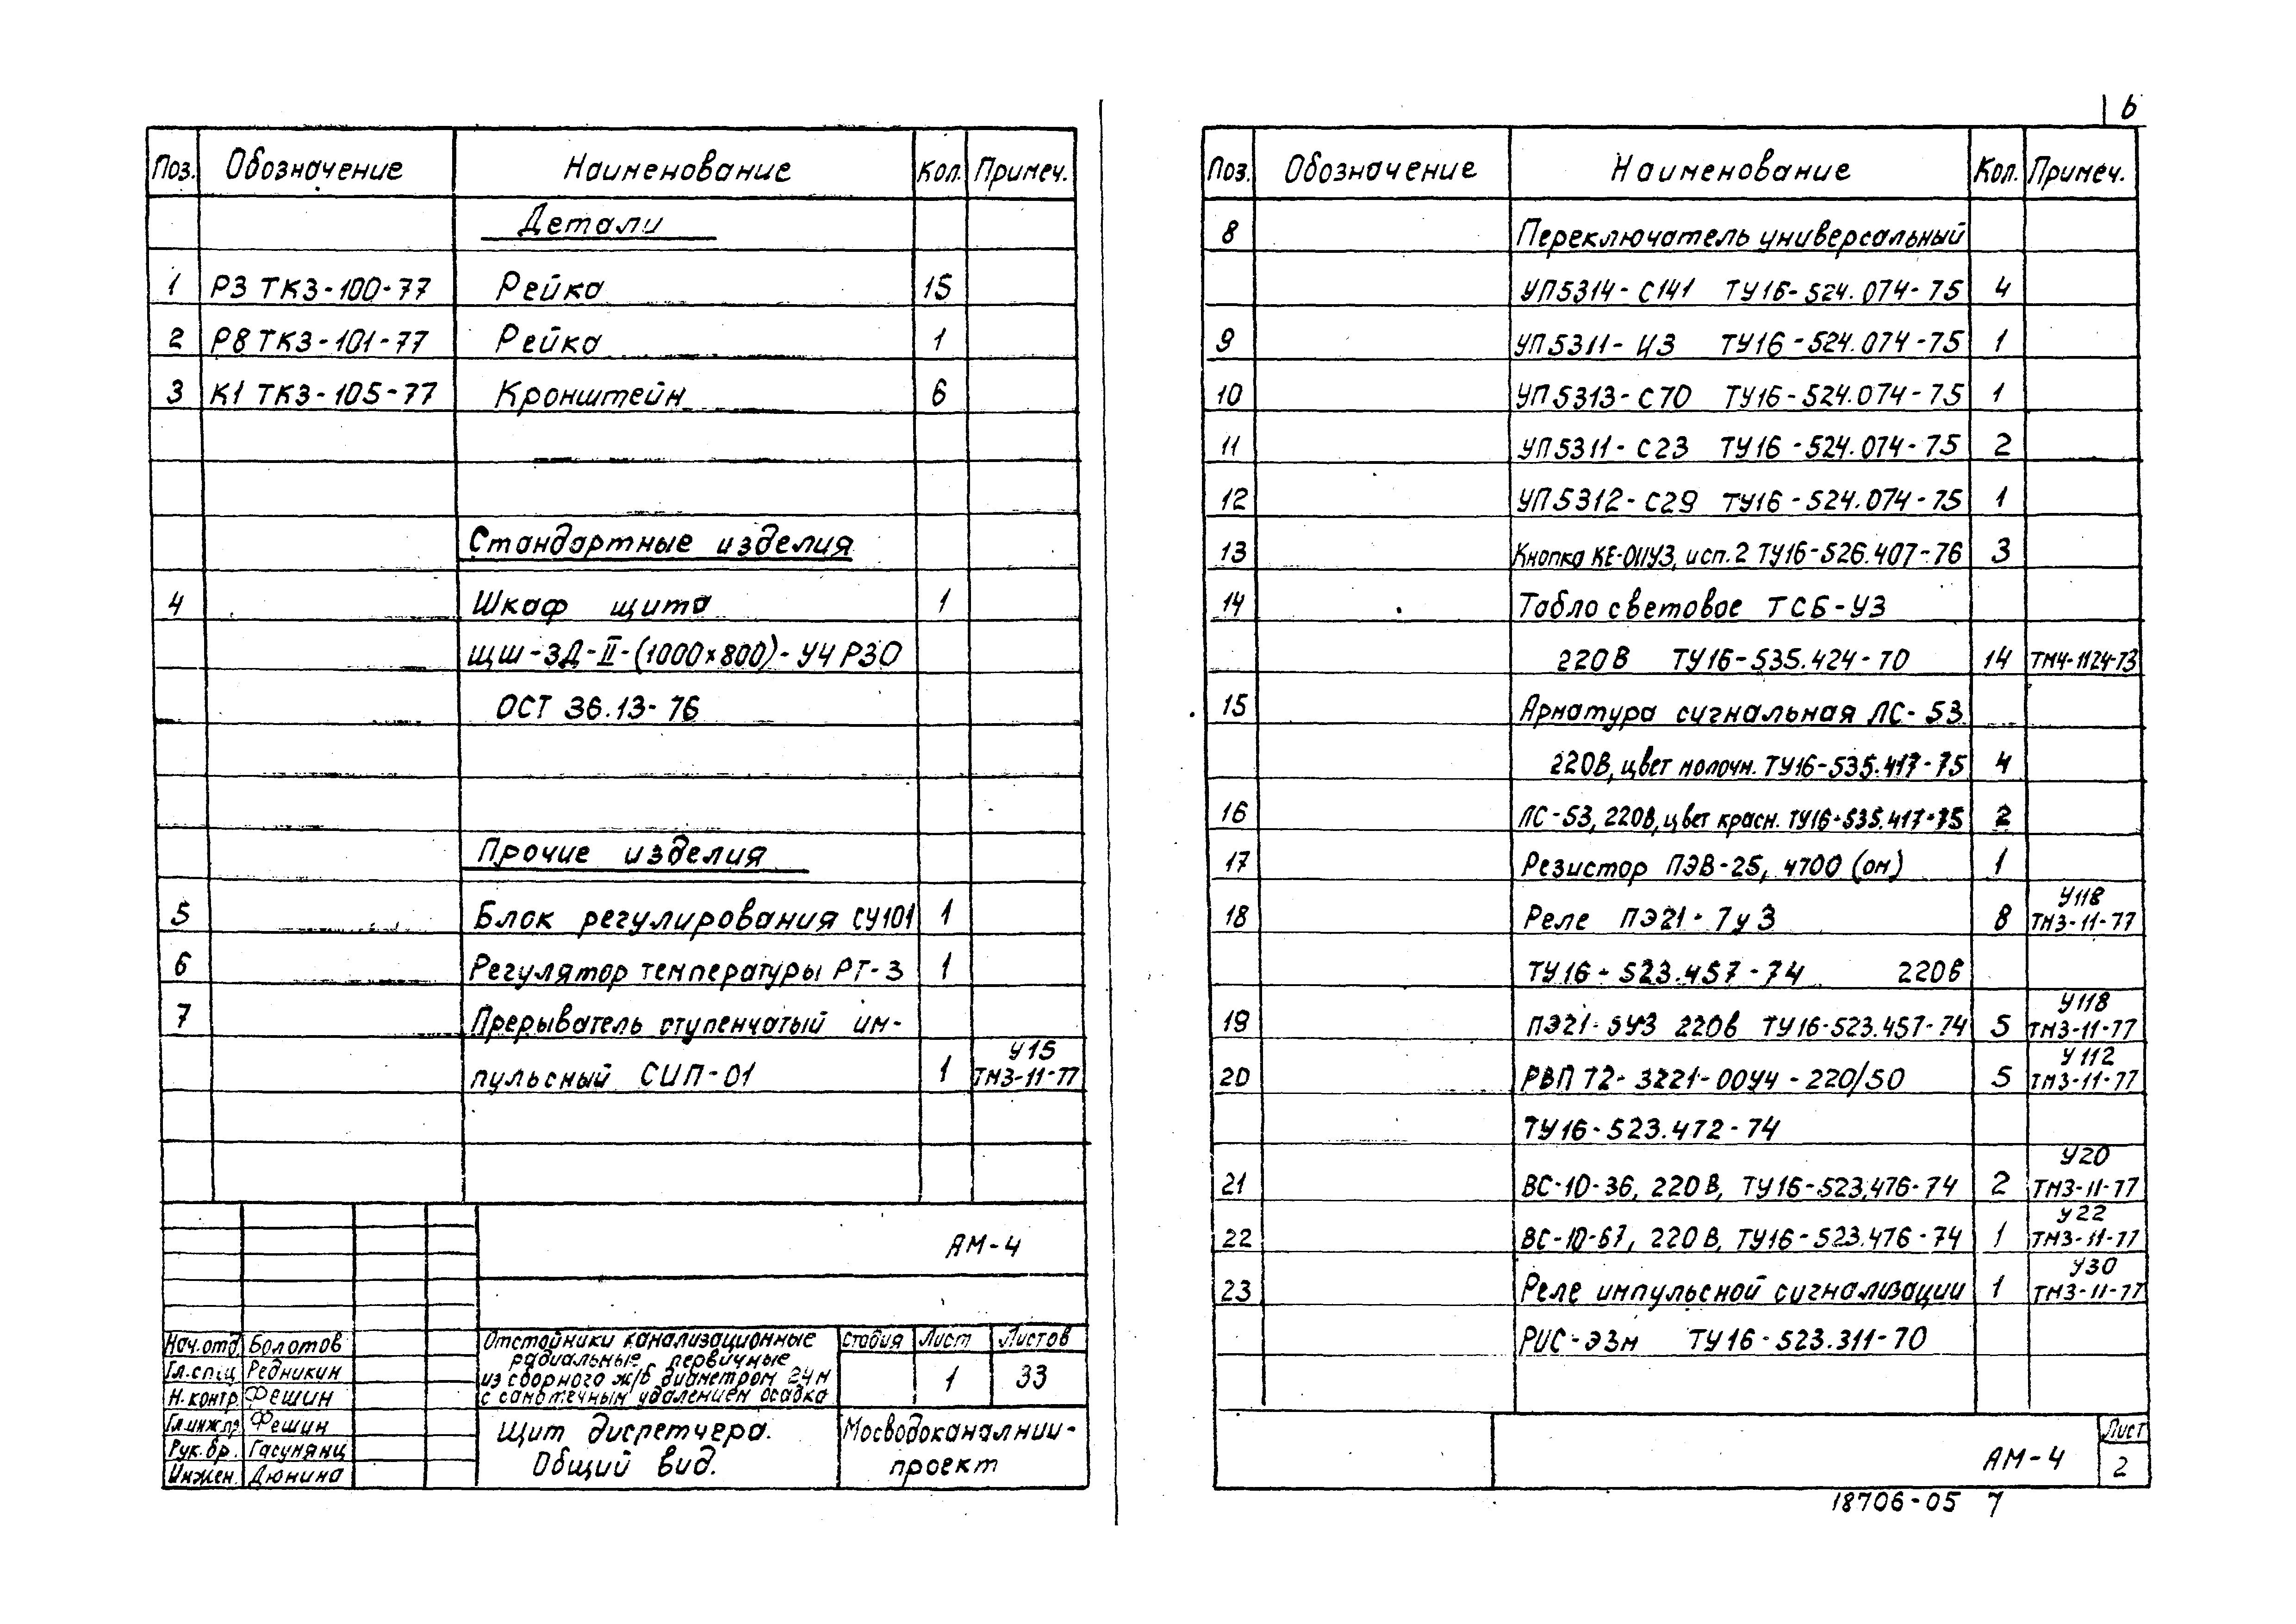 6
Поз. Обозначение Наименование Кол. Примеч.
Детали
1 Р3 ТК3-100-77 Рейка 15
2 Р8 ТК3-101-77 Рейка 1
3 К1 ТК3-105-77 Кронштейн 6
Стандартные изделия
4 Шкаф щита 1
ЩШ-ЗД-II-(1000×800)-У4 Р30
ОСТ 36.13-76
Прочие изделия
5 Блок регулирования СУ101 1
6 Регулятор температуры РТ-3 1
7 Прерыватель ступенчатый им-
пульсный СИП-01 1 У15 ТМ3-11-77
АМ-4
Нач.отд. Болотов
Гл.спец Редникин
Н.контр. Фешин
Гл.инж.пр. Фешин
Рук.бр. Гасунянц
Инжен. Дюнина
Отстойники канализационные
радиальные первичные
из сборного ж/б диаметром 24м
с самотечным удалением осадка
Стадия Лист Листов
1 33
Щит диспетчера.
Общий вид.
Мосводоканалнии-
проект
Поз. Обозначение Наименование Кол. Примеч.
8 Переключатель универсальный
УП5314-С141 ТУ16-524.074-75 4
9 УП5311-И3 ТУ16-524.074-75 1
10 УП5313-С70 ТУ16-524.074-75 1
11 УП5311-С23 ТУ16-524.074-75 2
12 УП5312-С29 ТУ16-524.074-75 1
13 Кнопка КЕ-011У3, исп.2 ТУ16-526.407-76 3
14 Табло световое ТСБ-У3
220В ТУ16-535.424-70 14 ТМ4-1124-73
15 Арматура сигнальная ЛС-53
220В, цвет молочн. ТУ16-535.417-75 4
16 ЛС-53, 220В, цвет красн. ТУ16-535.417-75 2
17 Резистор ПЭВ-25, 4700 (ом) 1
18 Реле ПЭ21-7У3 8 У118 ТМ3-11-77
ТУ16-523.457-74 220В
19 ПЭ21-5У3 220В ТУ16-523.457-74 5 У118 ТМ3-11-77
20 РВП 72-3221-00У4-220/50 5 У112 ТМ3-11-77
ТУ16-523.472-74
21 ВС-10-36, 220 В, ТУ16-523.476-74 2 У20 ТМ3-11-77
22 ВС-10-67, 220 В, ТУ16-523.476-74 1 У22 ТМ3-11-77
23 Реле импульсной сигнализации 1 У30 ТМ3-11-77
РИС-Э3м ТУ16-523.311-70
АМ-4
Лист
2
18706-05 7